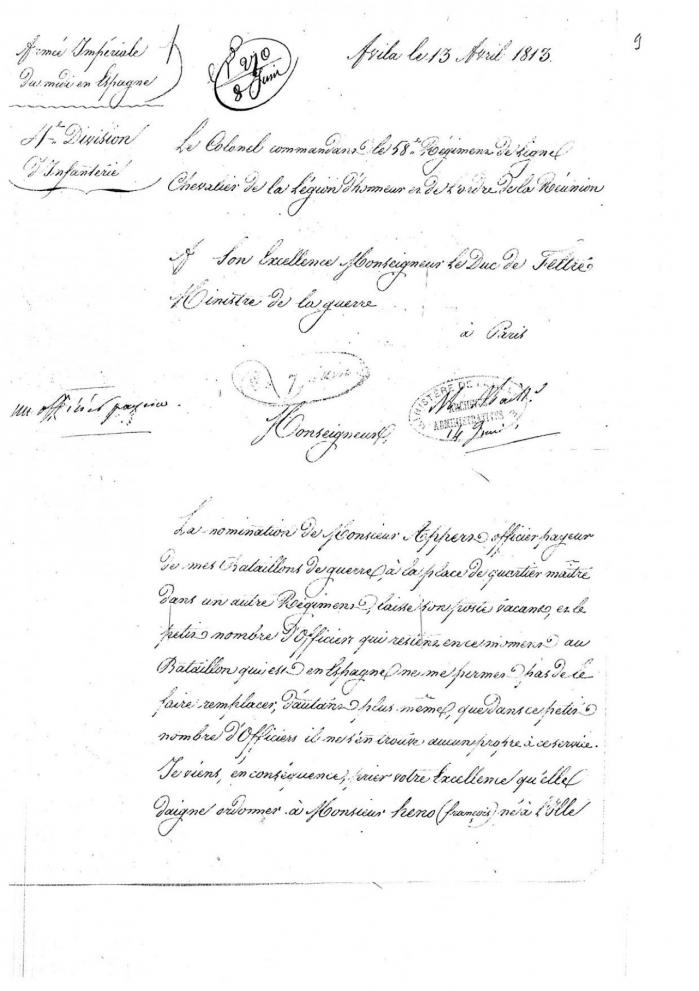 9
Armée Impériale
du midi en Espagne
P 270
8 Juin
Avila le 13 Avril 1813.
4e Division
d'Infanterie
Le Colonel commandant le 58e Régiment de ligne
Chevalier de la Légion d'honneur et de l'ordre de la Réunion
A Son Excellence Monseigneur Le Duc de Feltre
Ministre de la guerre
à Paris
7
MINISTÈRE DE
ADMINISTRATIVES
14 Juin
un officier payeur.
Monseigneur,
La nomination de Monsieur Appert officier payeur
de mes Bataillons de guerre, à la place de quartier maître
dans un autre Régiment, laisse son poste vacant, et le
petit nombre d'Officiers qui restent en ce moment au
Bataillon qui est en Espagne ne me permet pas de le
faire remplacer, d'autant plus même, que dans ce petit
nombre d'Officiers il ne s'en trouve aucun propre à ce service.
Je viens, en conséquence, prier votre Excellence qu'elle
daigne ordonner à Monsieur heno (françois) né à L'Ille